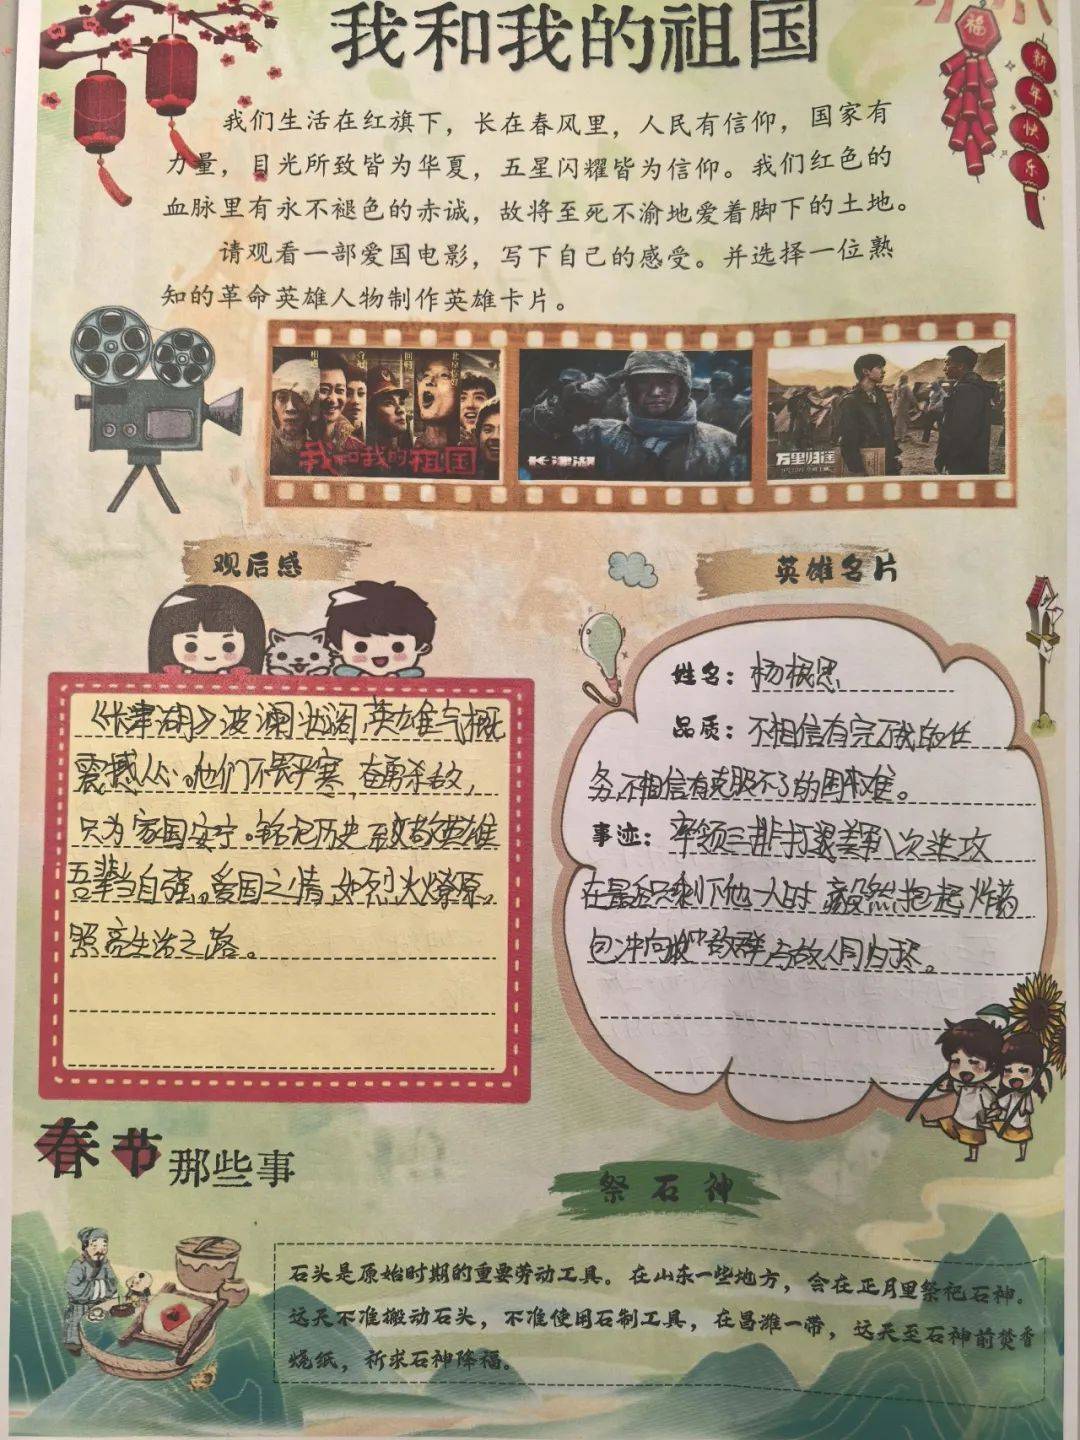 我和我的祖国
福
新年快乐
我们生活在红旗下，长在春风里，人民有信仰，国家有
力量，目光所致皆为华夏，五星闪耀皆为信仰。我们红色的
血脉里有永不褪色的赤诚，故将至死不渝地爱着脚下的土地。
请观看一部爱国电影，写下自己的感受。并选择一位熟
知的革命英雄人物制作英雄卡片。
我和我的祖国
长津湖
万里归途
观后感
《长津湖》波澜壮阔,英雄气概
震撼人心。他们不畏严寒,奋勇杀敌,
只为家国安宁。铭记历史致敬英雄
吾辈当自强。爱国之情,如烈火燎原,
照亮生活之路。
英雄名片
姓名：杨根思
品质：不相信有完不成的任
务,不相信有克服不了的困难。
事迹：率领三排打退美军八次进攻
在最后只剩下他一人时毅然抱起炸药
包冲向敌群与敌人同归于尽。
春节那些事
祭石神
石头是原始时期的重要劳动工具。在山东一些地方，会在正月里祭祀石神。
这天不准搬动石头，不准使用石制工具，在昌潍一带，这天至石神前焚香
烧纸，祈求石神降福。